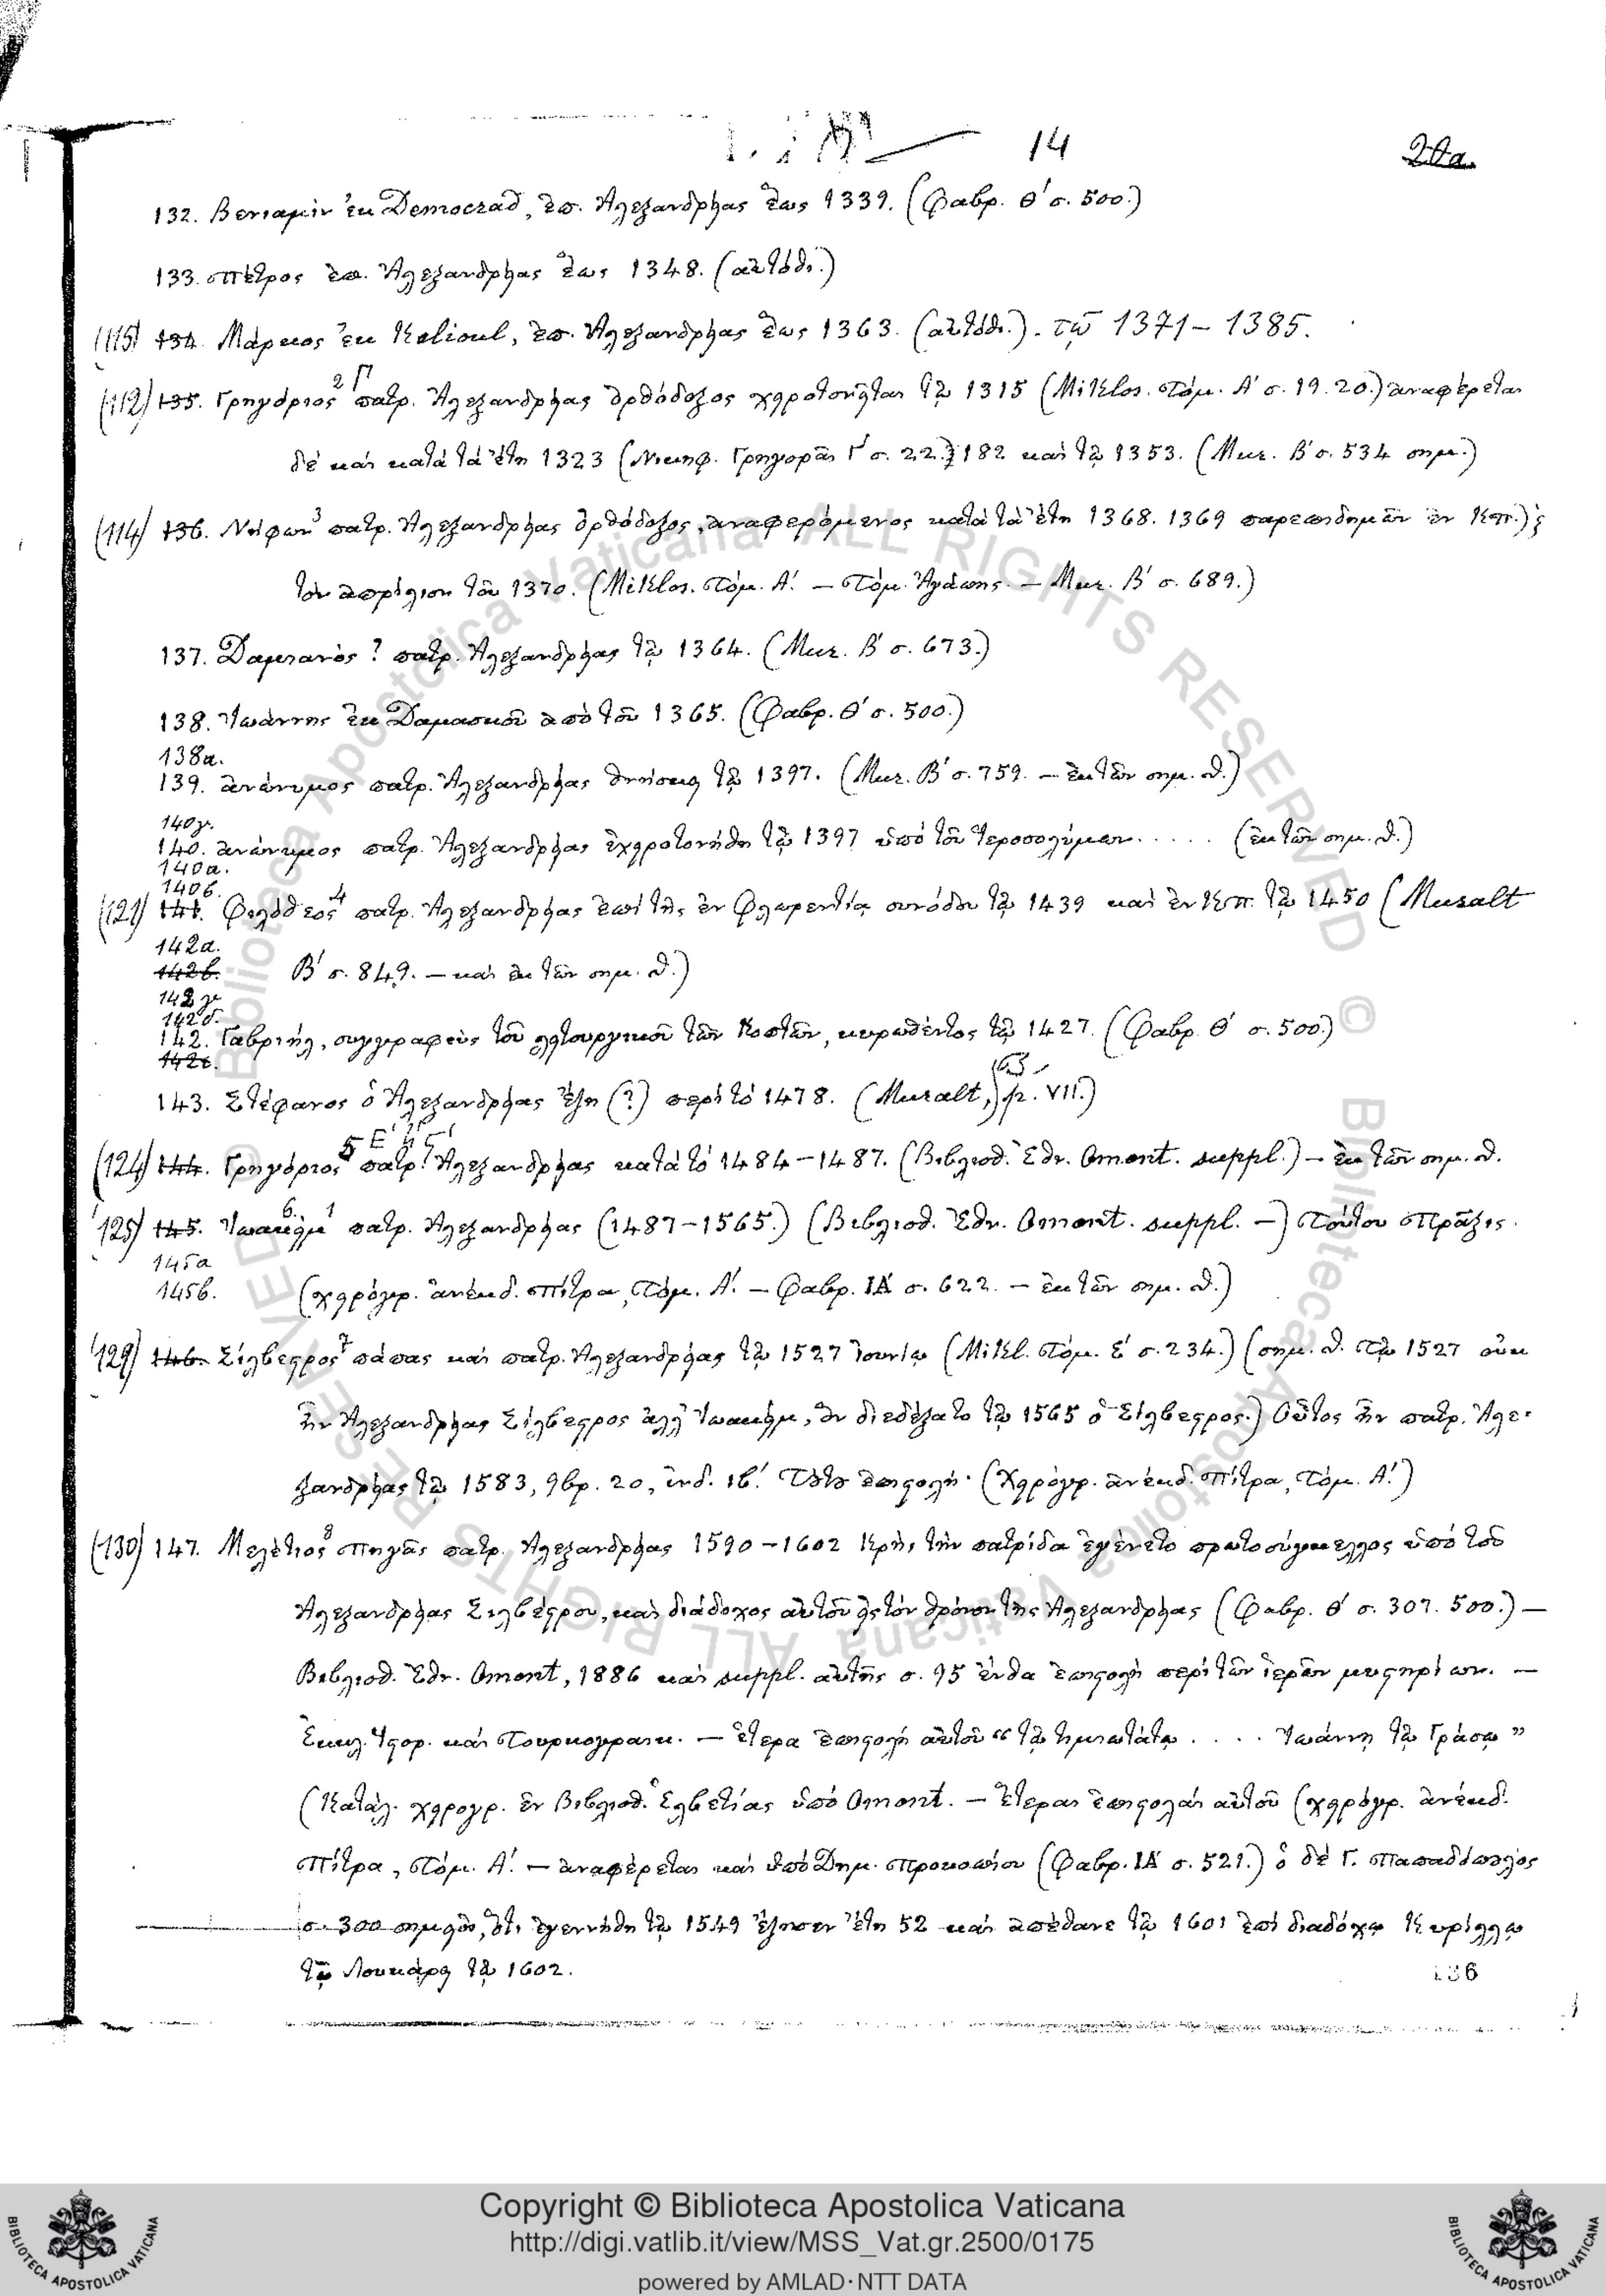 14
20a.
132. Βενιαμὶν ἐκ Democrad, ἐπ. Ἀλεξανδρείας ἕως 1339. (Φαβρ. Θ΄ σ. 500.)
133. Πέτρος ἐπ. Ἀλεξανδρείας ἕως 1348. (αὐτόθι.)
(115) 134. Μάρκος ἐκ Kelioul, ἐπ. Ἀλεξανδρείας ἕως 1363. (αὐτόθι.). τῷ 1371 – 1385.
(112) 135. Γρηγόριος 2 Γ πατρ. Ἀλεξανδρείας ὀρθόδοξος χειροτονεῖται τῷ 1315 (Miklos. τόμ. Α΄ σ. 19. 20.) ἀναφέρεται
δὲ καὶ κατὰ τὰ ἔτη 1323 (Νικηφ. Γρηγορᾶς Γ΄ σ. 22.) 182 καὶ τῷ 1353. (Mur. Β΄ σ. 534 σημ.)
(114) 136. Νήφων 3 πατρ. Ἀλεξανδρείας ὀρθόδοξος, ἀναφερόμενος κατὰ τὰ ἔτη 1368. 1369 παρεπιδημῶν ἐν Κπ.)
τὸν ἀπρίλιον τοῦ 1370. (Miklos. τόμ. Α΄. – τόμ. Ἀγάπης. – Mur. Β΄ σ. 689.)
137. Δαμιανὸς ? πατρ. Ἀλεξανδρείας τῷ 1364. (Mur. Β΄ σ. 673.)
138. Ἰωάννης ἐκ Δαμασκοῦ ἀπὸ τοῦ 1365. (Φαβρ. Θ΄ σ. 500.)
138α.
139. ἀνώνυμος πατρ. Ἀλεξανδρείας θνήσκει τῷ 1397. (Mur. Β΄ σ. 759. – ἐκ τῶν σημ. Θ.)
140γ.
140. ἀνώνυμος πατρ. Ἀλεξανδρείας ἐχειροτονήθη τῷ 1397 ὑπὸ τοῦ Ἱεροσολύμων..... (ἐκ τῶν σημ. Θ.)
140α.
140β.
(121) 141. Φιλόθεος 4 πατρ. Ἀλεξανδρείας ἐπὶ τῆς ἐν Φλωρεντίᾳ συνόδου τῷ 1439 καὶ ἐν Κπ. τῷ 1450 (Muralt
142α.
142β. Β΄ σ. 849. – καὶ ἐκ τῶν σημ. Θ.)
142γ
142δ.
142. Γαβριήλ, συγγραφεὺς τοῦ λειτουργικοῦ τῶν Κοπτῶν, κυρωθέντος τῷ 1427. (Φαβρ. Θ΄ σ. 500.)
142ε.
143. Στέφανος ὁ Ἀλεξανδρείας ἔζη (?) περὶ τὸ 1478. (Muralt, p. VII.)
(124) 144. Γρηγόριος 5 πατρ. Ἀλεξανδρείας κατὰ τὸ 1484 – 1487. (Βιβλιοθ. Ἐθν. Omont. suppl.) – ἐκ τῶν σημ. Θ.
(125) 145. Ἰωακεὶμ 6. πατρ. Ἀλεξανδρείας (1487 – 1565.) (Βιβλιοθ. Ἐθν. Omont. suppl. –) Τούτου Πρᾶξις.
145α
145β. (χειρόγρ. ἀνέκδ. Πίτρα, τόμ. Α΄. – Φαβρ. ΙΑ΄ σ. 622. – ἐκ τῶν σημ. Θ.)
(129) 146. Σίλβεστρος 7 πάπας καὶ πατρ. Ἀλεξανδρείας τῷ 1527 Ἰουνίῳ (Mikl. τόμ. Ε΄ σ. 234.) (σημ. Θ. Τῷ 1527 οὐκ
ἦν Ἀλεξανδρείας Σίλβεστρος ἀλλ' Ἰωακείμ, ὃν διεδέξατο τῷ 1565 ὁ Σίλβεστρος.) Οὗτος ἦν πατρ. Ἀλε-
ξανδρείας τῷ 1583, 9βρ. 20, ἰνδ. ιβ΄. Τούτου ἐπιστολή. (Χειρόγρ. ἀνέκδ. Πίτρα, τόμ. Α΄.)
(130) 147. Μελέτιος 8 Πηγᾶς πατρ. Ἀλεξανδρείας 1590 – 1602 Κρὴς τὴν πατρίδα ἐγένετο πρωτοσύγκελλος ὑπὸ τοῦ
Ἀλεξανδρείας Σιλβέστρου, καὶ διάδοχος αὐτοῦ εἰς τὸν θρόνον τῆς Ἀλεξανδρείας (Φαβρ. Θ΄ σ. 307. 500.) –
Βιβλιοθ. Ἐθν. Omont, 1886 καὶ suppl. αὐτῆς σ. 95 ἔνθα ἐπιστολὴ περὶ τῶν ἱερῶν μυστηρίων. –
Ἐκκλ. Ἱστορ. καὶ Τουρκογραικ. – ἑτέρα ἐπιστολὴ αὐτοῦ “τῷ τιμιωτάτῳ . . . . Ἰωάννῃ τῷ Γράσῳ”
(Κατάλ. χειρογρ. ἐν Βιβλιοθ. Ἑλβετίας ὑπὸ Omont. – Ἕτεραι ἐπιστολαὶ αὐτοῦ (χειρόγρ. ἀνέκδ.
Πίτρα, τόμ. Α΄. – ἀναφέρεται καὶ ὑπὸ Δημ. Προκοπίου (Φαβρ. ΙΑ΄ σ. 521.) ὁ δὲ Γ. Παπαδόπουλος
σ. 300 σημειοῖ, ὅτι ἐγεννήθη τῷ 1549 ἔζησεν ἔτη 52 καὶ ἀπέθανε τῷ 1601 ἐπὶ διαδόχῳ Κυρίλλῳ
τῷ Λουκάρει τῷ 1602.
136
© Biblioteca Apostolica Vaticana ALL RIGHTS RESERVED
Copyright © Biblioteca Apostolica Vaticana
http://digi.vatlib.it/view/MSS_Vat.gr.2500/0175
powered by AMLAD·NTT DATA
BIBLIOTECA APOSTOLICA VATICANA
BIBLIOTECA APOSTOLICA VATICANA